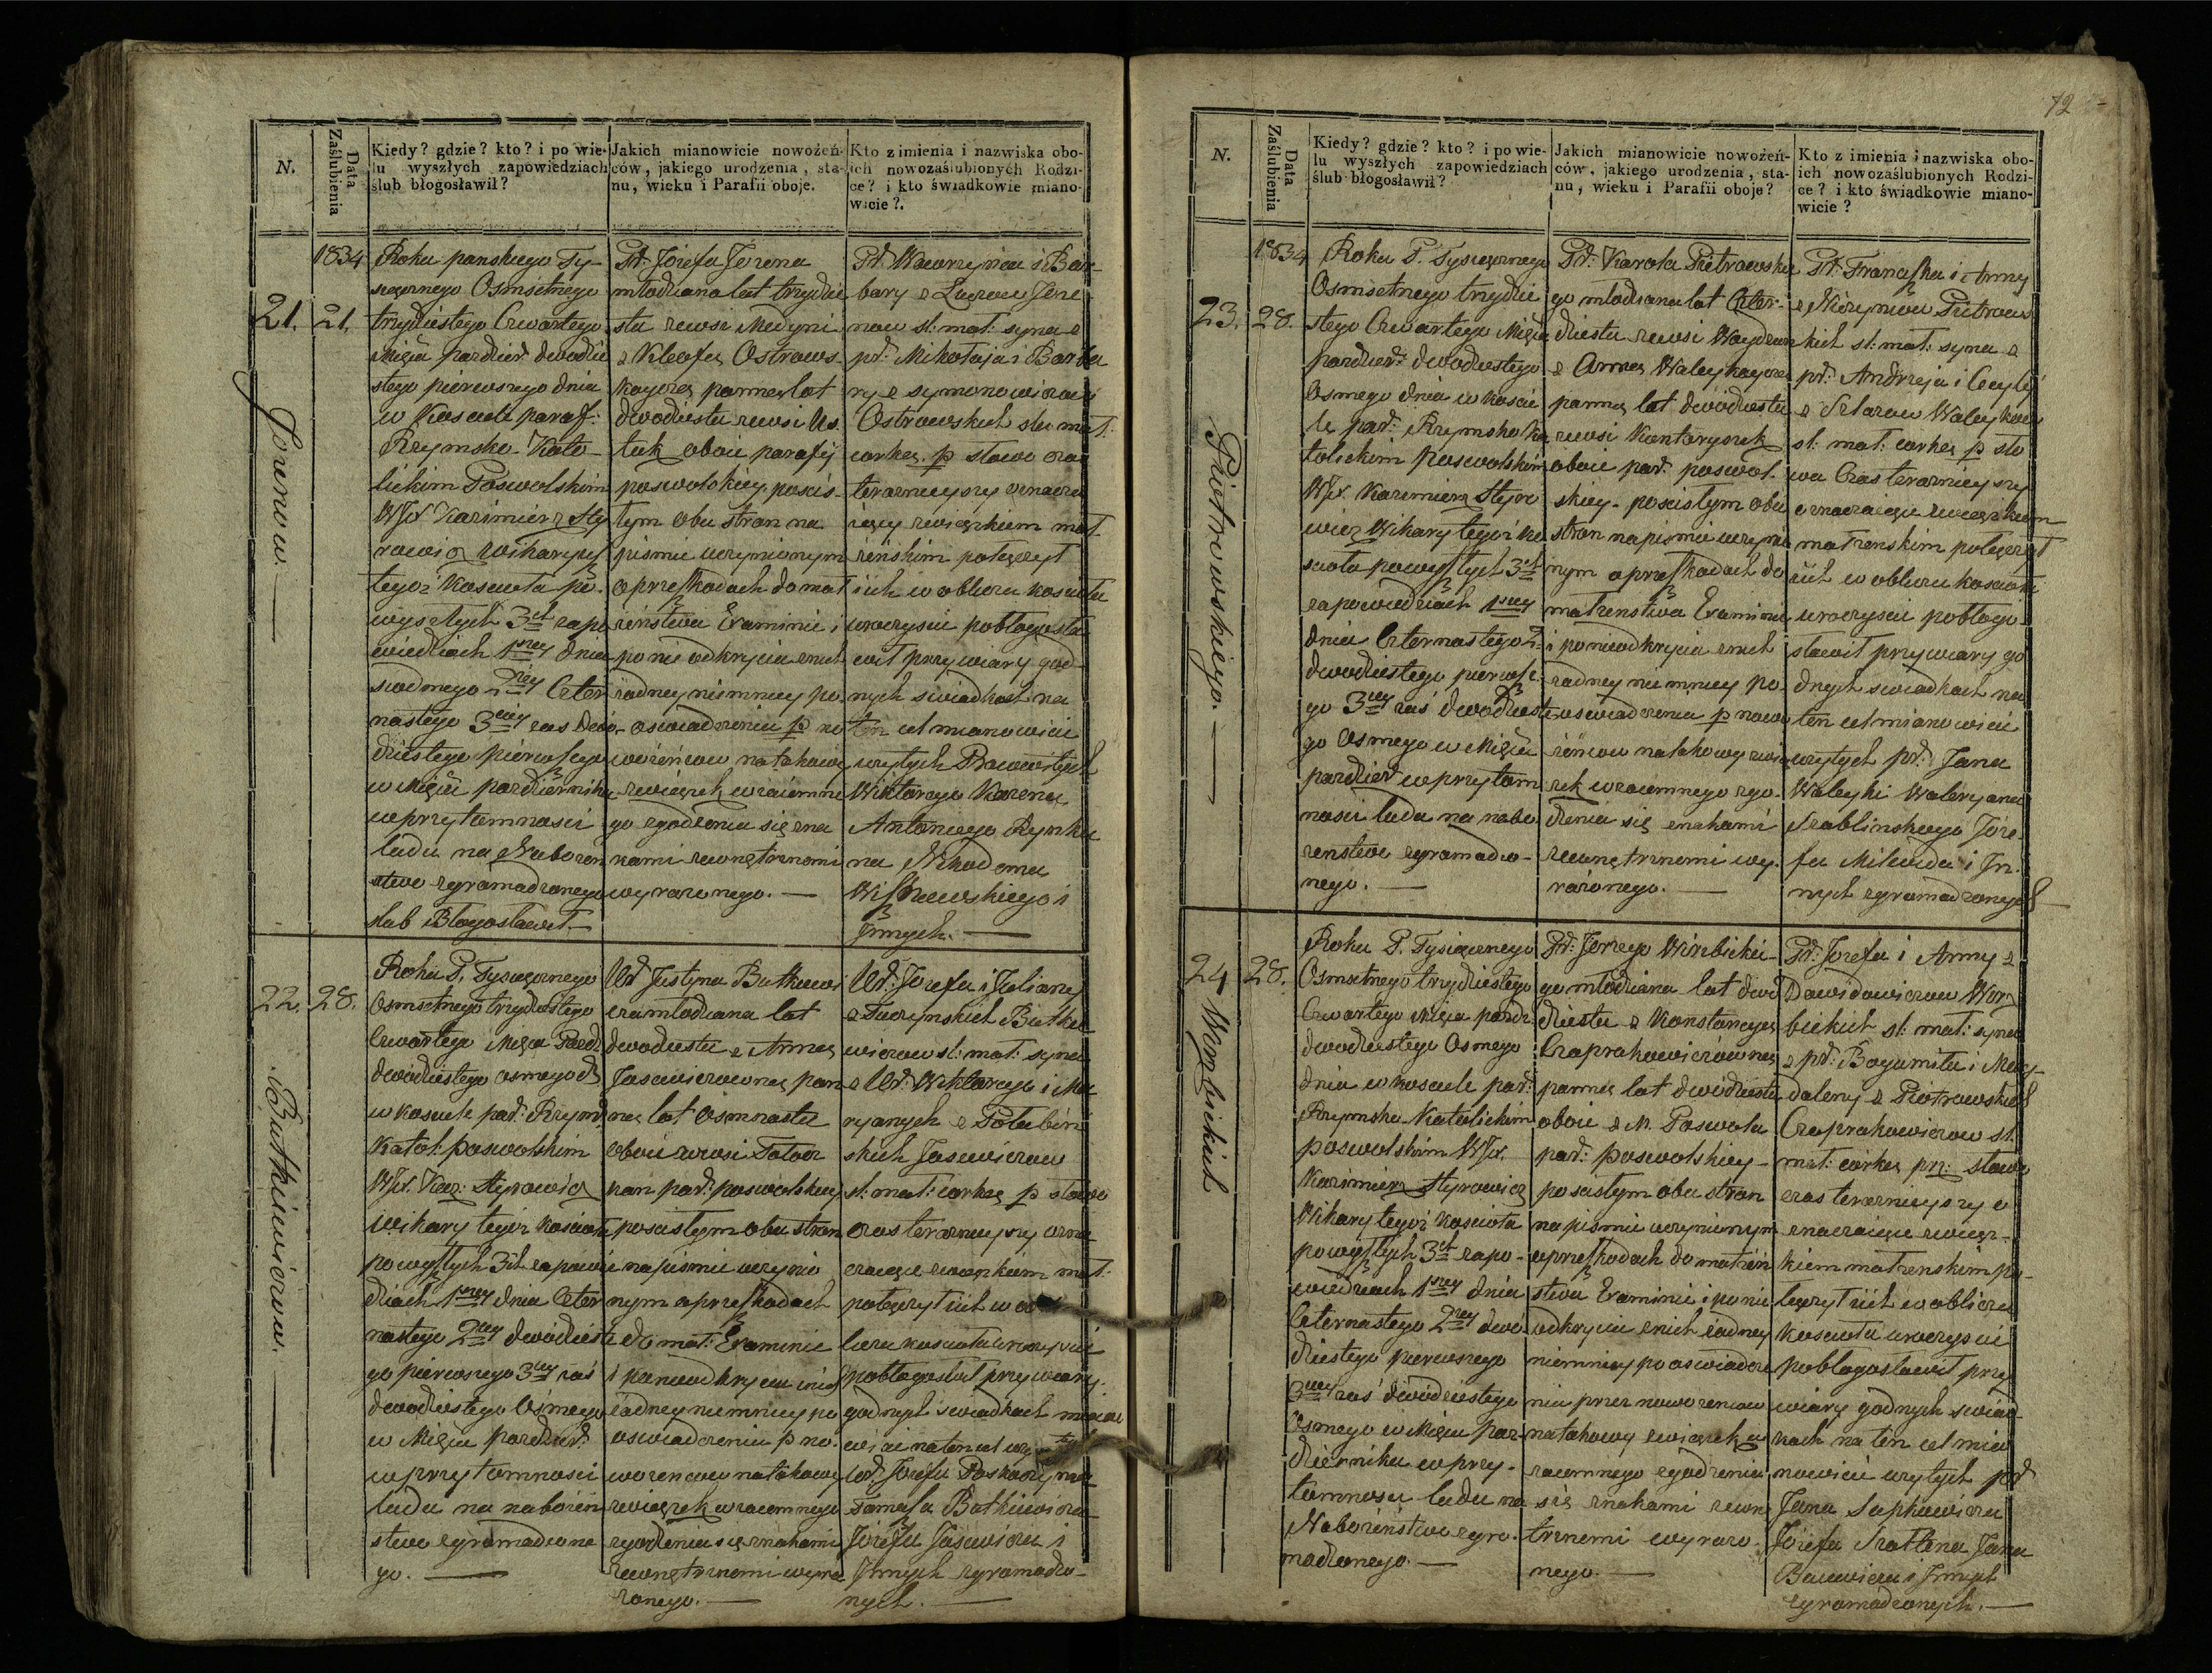 72
N.
Data Zaślubienia
Kiedy? gdzie? kto? i po wie-
lu wyszłych zapowiedziach
ślub błogosławił?
Jakich mianowicie nowożeń-
ców, jakiego urodzenia, sta-
nu, wieku i Parafii oboje.
Kto z imienia i nazwiska obo-
ich nowozaślubionych Rodzi-
ce? i kto świadkowie miano-
wicie?.
1834
21.
21.
Jorenow.
Roku panskiego Ty-
sięcznego Osmsetnego
trzydziestego Czwartego
stego pierwszego dnia
w Kosciele paraf:
Rzymsko-Kato-
lickim Poswolskim
WJX Kazimierz Sty
rowicz wikaryusz
tegoż Koscioła po-
wyszłych 3ch zapo
wiedziach 1szey dnia
siodmego 2giey Czter
nastego 3ciey zas dwu-
dziestego pierwszego
w Mięcu pazdzierniku
w przytomnosci
ludu na Nabożen
stwo zgromadzonego
slub Błogosławił.—
Pd: Jozefa Jorena
młodziana lat trzydzie
stu zewsi Medyni
z Kleofą Ostrows-
kayczą panną lat
dwodziestu zewsi Us.
tuk oboie parafij
poswolskiey. poscis-
tym obu stron na
pismie uczynionym
oprzeszkodach do mał
żeństwa Examinie i
po nie odkryciu znich
żadney niemniey po
oswiadczeniu p no
wożeńcow na takowy
związek wzaiemne
go zgodzenia się zna
kami zewnętrznemi
wyrażonego.—
Pd: Wawrzyńca i Bar-
bary z Lugzow Jore
now sl: mał: syna z
pd: Mikołaja i Barba
ry z symonowiczow
Ostrowskich slu mał:
corkę. p słowo oraz
teraznieyszy oznacza
iący związkiem mał.
żeńskim połączył
iich w obliczu kosciola
uroczyscie pobłogosła
wił przy wiary god-
nych swiadkach na
ten cel mianowicie
użytych Prawowitych
Wiktorego Korena
Antoniego Rynkie
na Nikodema
Wiszniewskiego i
Innych.—
22.
28.
Butkiewiczow.
Roku P. Tysięcznego
Osmsetnego trzydziestego
Czwartego Mięca Pazdz
dwódziestego osmego d.
w kosciele par: Rzyms
Katol: poswolskim
WJX. Kaz: Styrowicz
Wikary tegoż kosciola
powyszłych 3ch zapowie
dziach 1szey dnia Czter
nastego 2giey dwódzieste
go pierwszego 3ciey zaś
dwodziestego Osmego
w Mięcu pazdzier:
w przytomnosci
ludu na nabożeń
stwo zgromadzone
go.—
Ud: Justyna Butkiewi
cza młodziana lat
dwodziestu z Anną
Jasiewiczowną pan
ną lat Osmnastu
oboie zewsi Tatoer
kan par: poswolskiey
poscistym obu stron
i napismie uczynio
nym oprzeszkodach
do mał: Examinie
i ponieodkryciu znich
żadney niemniey po
oswiadczeniu p no.
wożencow natakowy
związek wzaiemnego
zgodzenia się znakami
zewnętrznemi wyra
żonego.—
Ud: Jozefa i Juliany
z Tuczynskich Butkie
wiczow sl: mał: syna
z Ud: Wiktorego i Ma
ryanych z Połubin
skich Jasiewiczow
sl: mał: corkę p słowo
oras teraznieyszy ozna
czaięce związkiem mał.
połączył iich w ob
liczu kosciola uroczyscie
pobłogosławił przy wiary.
godnych swiadkach miano
wicie naten cel użytych
Ud: Jozefa Poskoczyma
Tomasza Butkiewicza
Józefa Jasiewicza i
Innych zgromadzo-
nych.—
N.
Data Zaślubienia
Kiedy? gdzie? kto? i po wie-
lu wyszłych zapowiedziach
ślub błogosławił?
Jakich mianowicie nowożeń-
ców, jakiego urodzenia, sta-
nu, wieku i Parafii oboje?
Kto z imienia i nazwiska obo-
ich nowozaślubionych Rodzi-
ce? i kto świadkowie miano-
wicie?
1834
23.
28.
Piotrowskiego.
Roku P. Tysięcznego
Osmsetnego trzydzie
stego Czwartego Mięca
pazdzier: dwodziestego
Osmego dnia w koscie
le par: Rzymsko Ka
tolickim poswolskim
WJX. Kazimierz Styro
wicz Wikary tegoż ko
scioła powyszłych 3ch
zapowiedziach 1szey
dnia Czternastego 2.
dwodziestego pierwsze
go 3ciey zaś dwodzieste
go Osmego w Mięcu
pazdzier w przytom
nosci ludu na nabo
żenstwo zgromadzo-
nego.—
Pd: Karola Pietrowskie
go młodziana lat Czter-
dziestu zewsi Wayduan
z Anną Waleykayczą
panną lat dwodziestu
zewsi Kantaryszek
oboie par: poswol.
skiey. poscistym obu
stron napismie uczynio
nym oprzeszkodach do
małżenstwa Examinie
i ponieodkryciu znich
żadney niemniey po.
oswiadczeniu p nowo
żeńcow na takowy zwią
zek wzaiemnego zgo.
dzenia się znakami
zewnętrznemi wy.
rażonego.—
Pd: Franciszka i Anny
z Niżyniow Pietrows
kich sl: mał: syna z
pd: Andrzeja i Cecylij
z Sztarow Waleykow
sl: mał: corkę p sło
wa Czas teraznieyszy
oznaczaięce związkiem
małżenskim połączył
iich w obliczu kosciola
uroczyscie pobłogo-
sławił przy wiary go
dnych swiadkach na
ten cel mianowicie
użytych pd: Jana
Waleyki Waleryana
Szablinskiego Joze.
fa Milwida i In.
nych zgromadzonych—
24
28.
Wirzbickich
Roku P. Tysięcznego
Osmsetnego trzydziestego
Czwartego Mięca pazdz:
dwodziestego Osmego
dnia w kosciele par:
Rzymsko-Katolickim
poswolskim WJX.
Kazimierz Styrowicz
Wikary tegoż kosciola
powyszłych 3ch zapo-
wiedziach 1szey dnia
Czternastego 2giey dwó
dziestego pierwszego
3ciey zaś dwódziestego
Osmego w Mięcu paz
dzierniku w przy-
tomnosci ludu na
Nabożeństwo zgro.
madzonego.—
Pd: Jerzego Wirzbickie-
go młodziana lat dwo
dziestu z Konstancyą
Czaprakowiczówną
panną lat dwódziestu
oboie z M. Poswola
par: poswolskiey—
poscistym obu stron
napismie uczynionym
oprzeszkodach do małżeń
stwa Examinie i ponie
odkryciu znich żadney
niemniey po oswiadcze
niu przez nowożencow
natakowy związek w
zaiemnego zgodzenia
się znakami zewnę
trznemi wyrażo.
nego.—
Pd: Jozefa i Anny z
Dawidowiczow Wirz
bickich sl: mał: syna
z pd: Bogumiła i Mag-
daleny z Piotrowskich
Czaprakowiczow sl.
mał: corkę prz: słowo
czas teraznieyszy o
znaczaięce związ-
kiem małżenskim po-
łączył iich w obliczu
kosciola uroczyscie
pobłogosławił przy
wiary godnych swiad-
kach na ten cel mia
nowicie użytych pd
Jana Sapkiewicza
Józefa Jana
i Innych
zgromadzonych.—